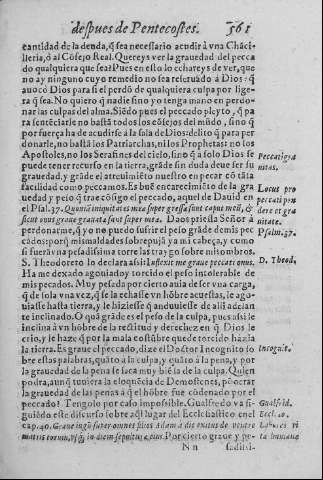 despues de Pentecostes. 561
cantidad de la deuda, q̃ sea necessario acudir à vna Chãci-
lleria, ò al Cõsejo Real. Quereys ver la grauedad del peca
do qualquiera que sea? Pues en esto lo echareys de ver, que
no ay ninguno cuyo remedio no sea reseruado à Dios: q̃
auocò Dios para si el perdõ de qualquiera culpa por lige-
ra q̃ sea. No quiero q̃ nadie sino yo tenga mano en perdo-
nar las culpas del alma. Siẽdo pues el pecado pleyto, q̃ pa
ra sentẽciarle no bastã todos los cõsejos del mũdo, sino q̃
por fuerça ha de acudirse à la sola de Dios: delito q̃ para per
donarle, no bastã los Patriarchas, ni los Prophetas: no los
Apostoles, no los Serafines del cielo, sino q̃ à solo Dios se
puede tener recurso en la tierra, grãde sin duda deue ser su
grauedad, y grãde el atreuimiẽto nuestro en pecar cõ tãta
facilidad como peccamos. Es buẽ encarecimiẽto de la gra
uedad y peso q̃ trae cõsigo el pecado, aquel de Dauid en
el Psal. 37. Quoniã iniquitates meæ super gressæ sunt caput meũ, &
sicut onus graue grauatæ sunt super me. Daos priessa Señor à
perdonarme, q̃ yo no puedo sufrir el peso grãde de mis pec
cados: porq̃ mis maldades sobrepujã ya mi cabeça, y como
si fuerã vna pesadissima torre las traygo sobre mis ombros.
S. Theodoreto lo declara assi: Inflexit me graue peccati onus.
Ha me dexado agouiado y torcido el peso intolerable de
mis pecados. Muy pesada por cierto auia de ser vna carga,
q̃ de sola vna vez, q̃ se la echasse vn hõbre acuestas, le ago-
uiasse hasta tierra, y le hiziesse q̃ anduuiesse de alli adelan
te inclinado. O quã grãde es el peso de la culpa, pues assi le
inclina à vn hõbre de la restitud y derechez en q̃ Dios le
criò, y le haze q̃ por la mala costũbre quede torcido hàzia
la tierra. Es graue el peccado, dize el Doctor Incognito so
bre estas palabras, quãto à la culpa, y quãto à la pena, y por
la grauedad de la pena se saca muy biẽ la de la culpa. Quien
podra, aunq̃ tuuiera la eloquẽcia de Demostenes, põderar
la grauedad de las penas à q̃ el hõbre fue cõdenado por el
peccado? Tengolo por caso impossible. Gualfredo và si-
guiẽdo este discurso sobre aql̃ lugar del Ecclesiastico en el
cap. 40. Graue iugũ super omnes filios Adam à die exitus de ventre
matris eorum, vsq; in diem sepulturæ, eius. Por cierto graue y pe-
Nn sadissi-
Peccati gra
uitas.
Locus pro
peccati põn
dere et gra
uitate.
Psalm. 37.
D. Theod.
Incognit.
Gualfrid.
Eccl. 40.